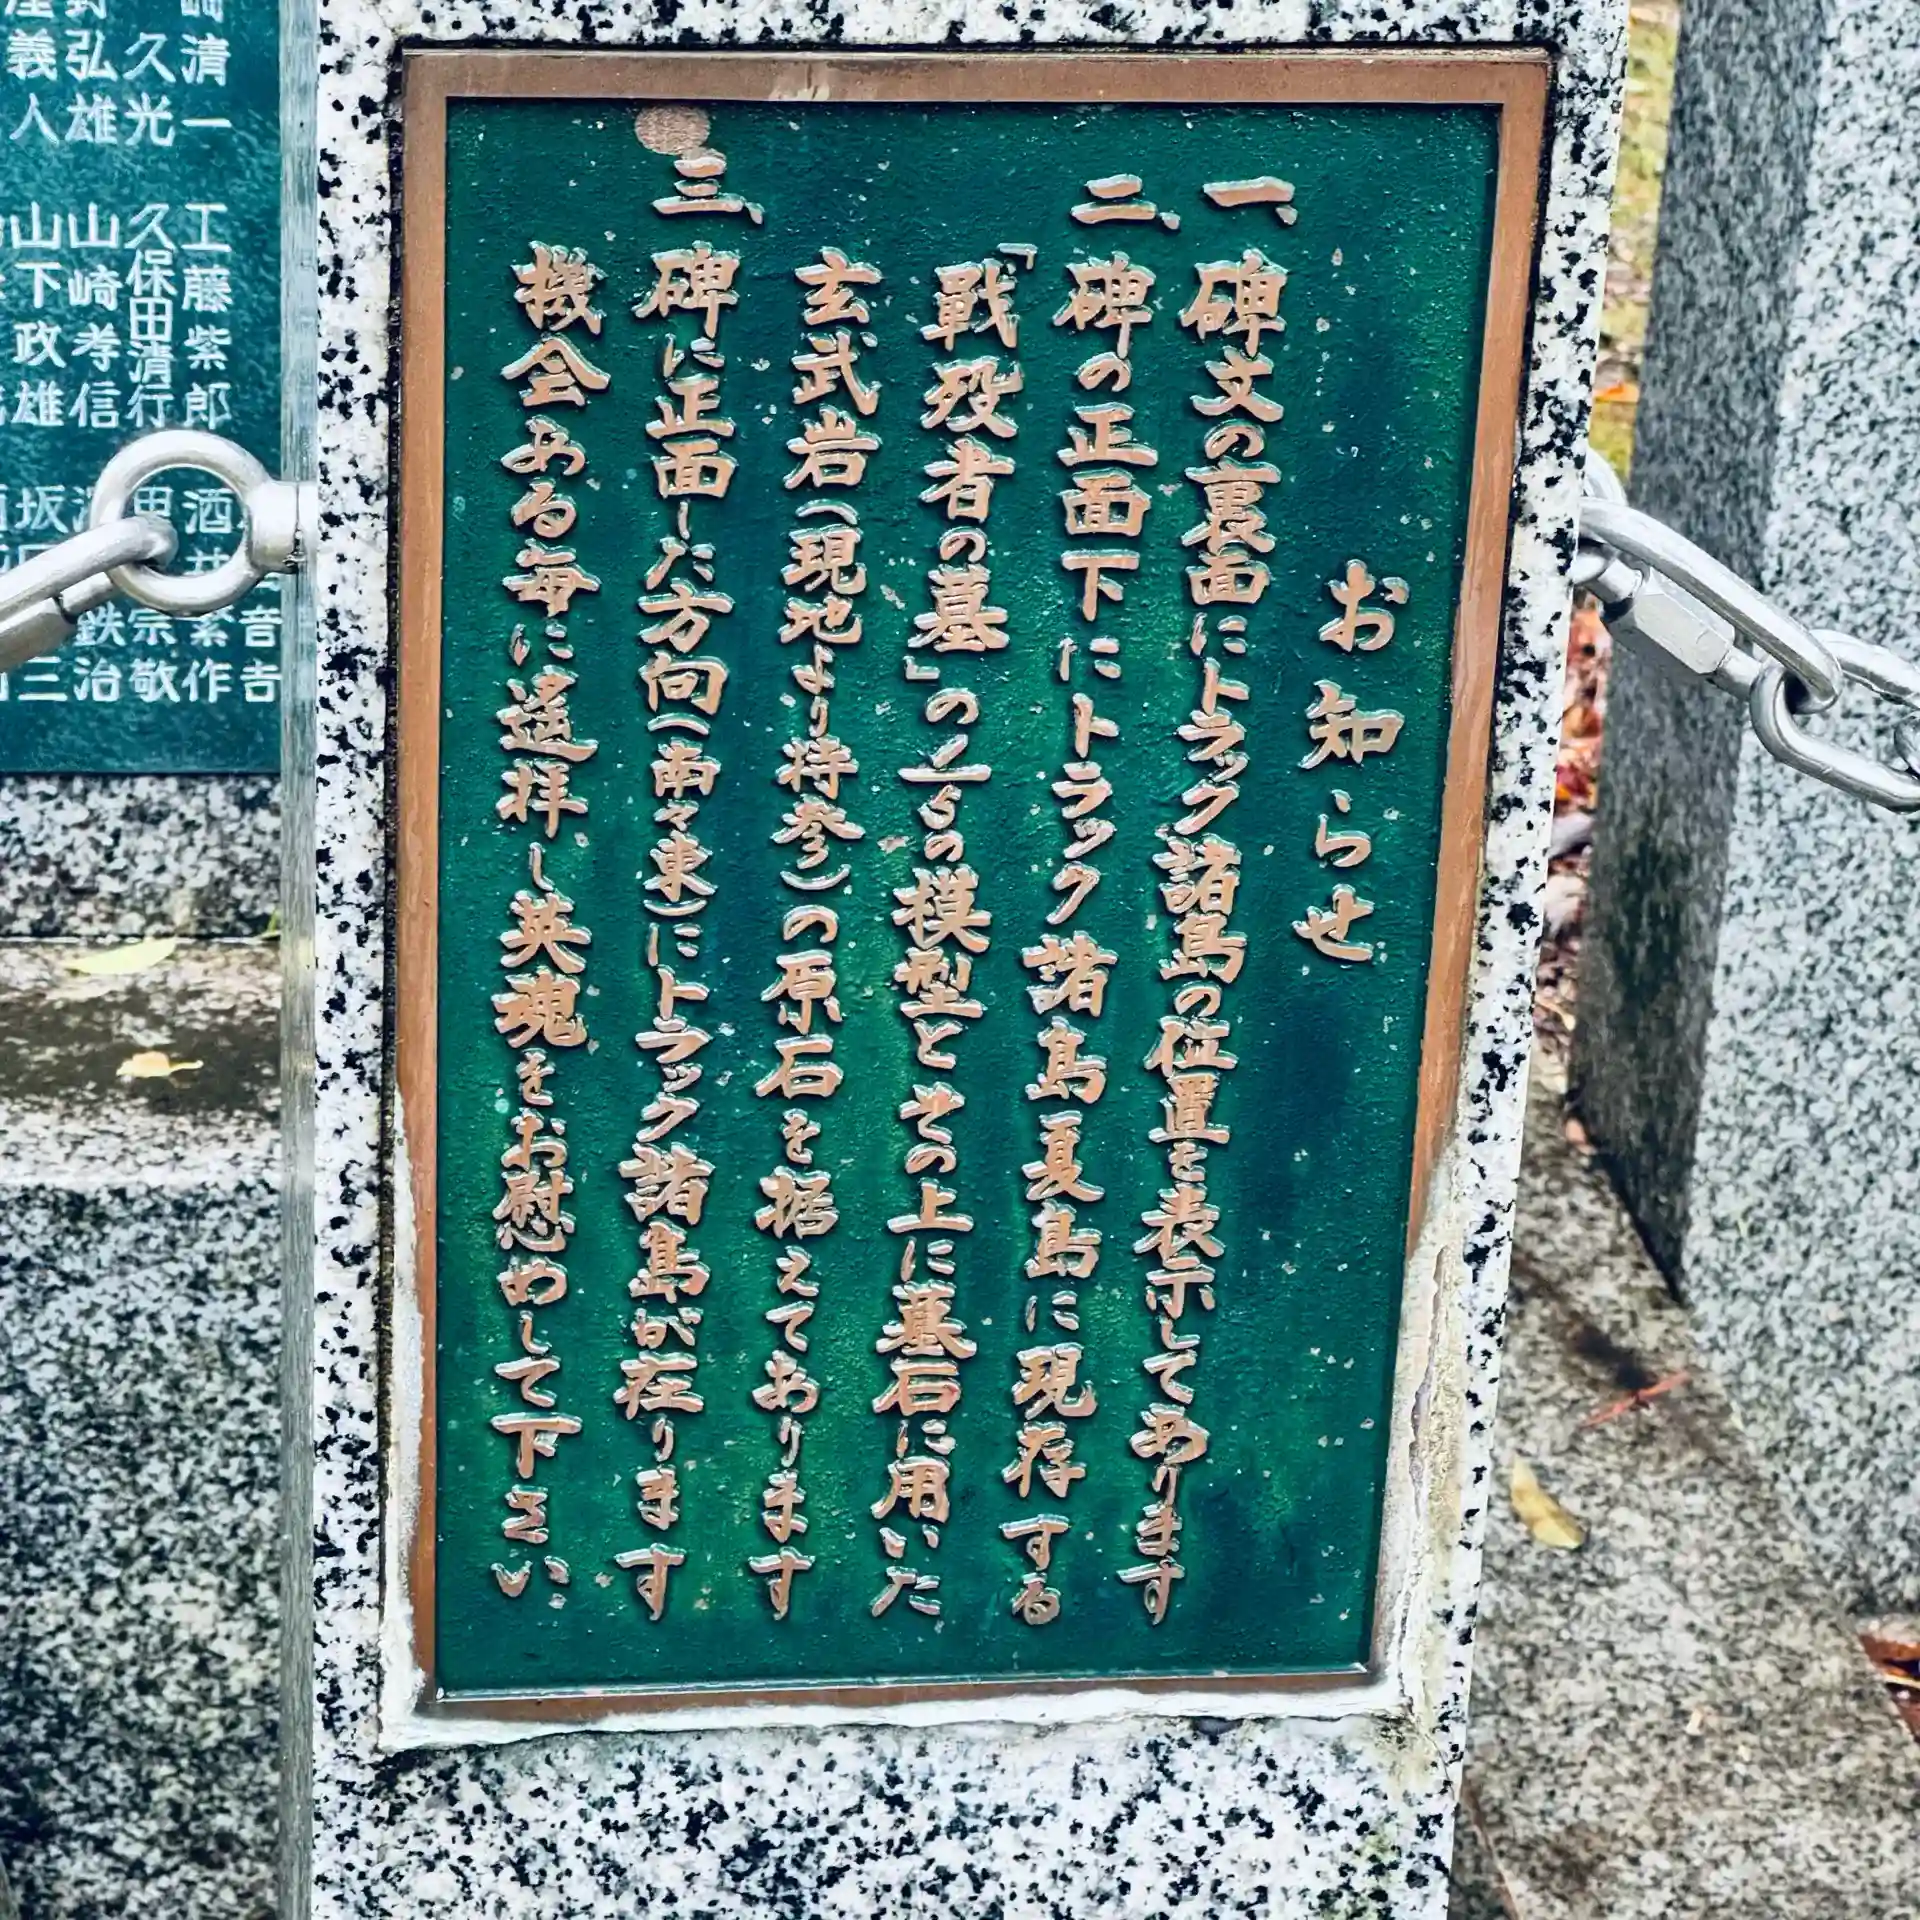 お知らせ
一、碑文の裏面にトラック諸島の位置を表示してあります
二、碑の正面下にトラック諸島夏島に現存する
「戰歿者の墓」の1/5の模型とその上に墓石に用いた
玄武岩(現地より持参)の原石を据えてあります
三、碑に正面した方向(南々東)にトラック諸島が在ります
機会ある毎に遙拝し英魂をお慰めして下さい
清一 工藤紫郎
久光 久保田清行
弘雄 山崎孝信
義人 山下政雄